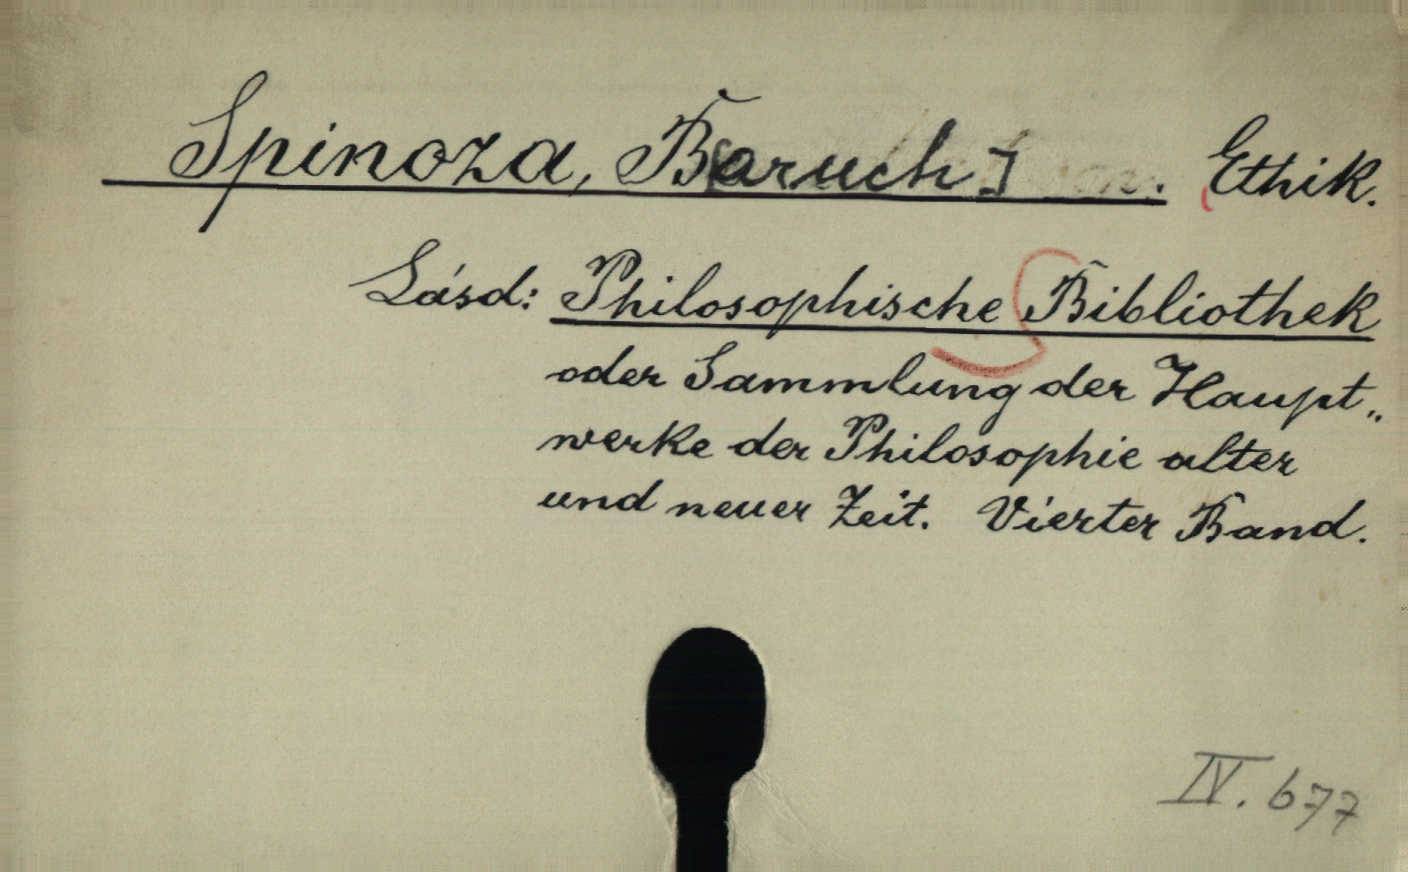 Spinoza, Baruch]. Ethik.
Lásd: Philosophische Bibliothek
oder Sammlung der Haupt„
werke der Philosophie alter
und neuer Zeit. Vierter Band.
IV. 677